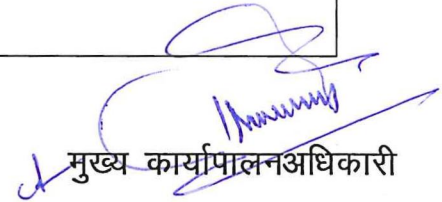 मुख्य कार्यापालनअधिकारी